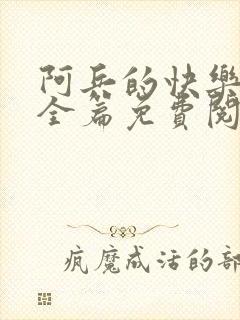 阿兵的快樂
全篇免費閱
疯魔成活的部